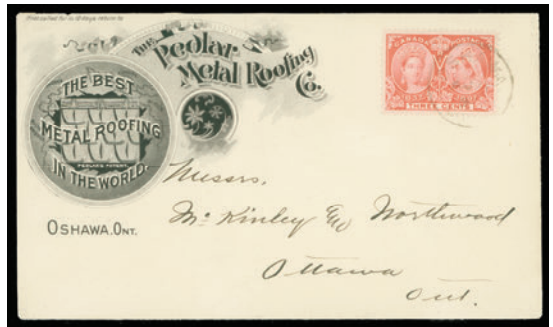 If not called for in 10 days return to
The Pedlar
Metal Roofing
Co.
THE BEST
METAL ROOFING
IN THE WORLD.
PEDLAR'S PATENT
OSHAWA. ONT.
CANADA POSTAGE
1837 1897
THREE CENTS
Messrs.
McKinley & Northwood
Ottawa
Ont.